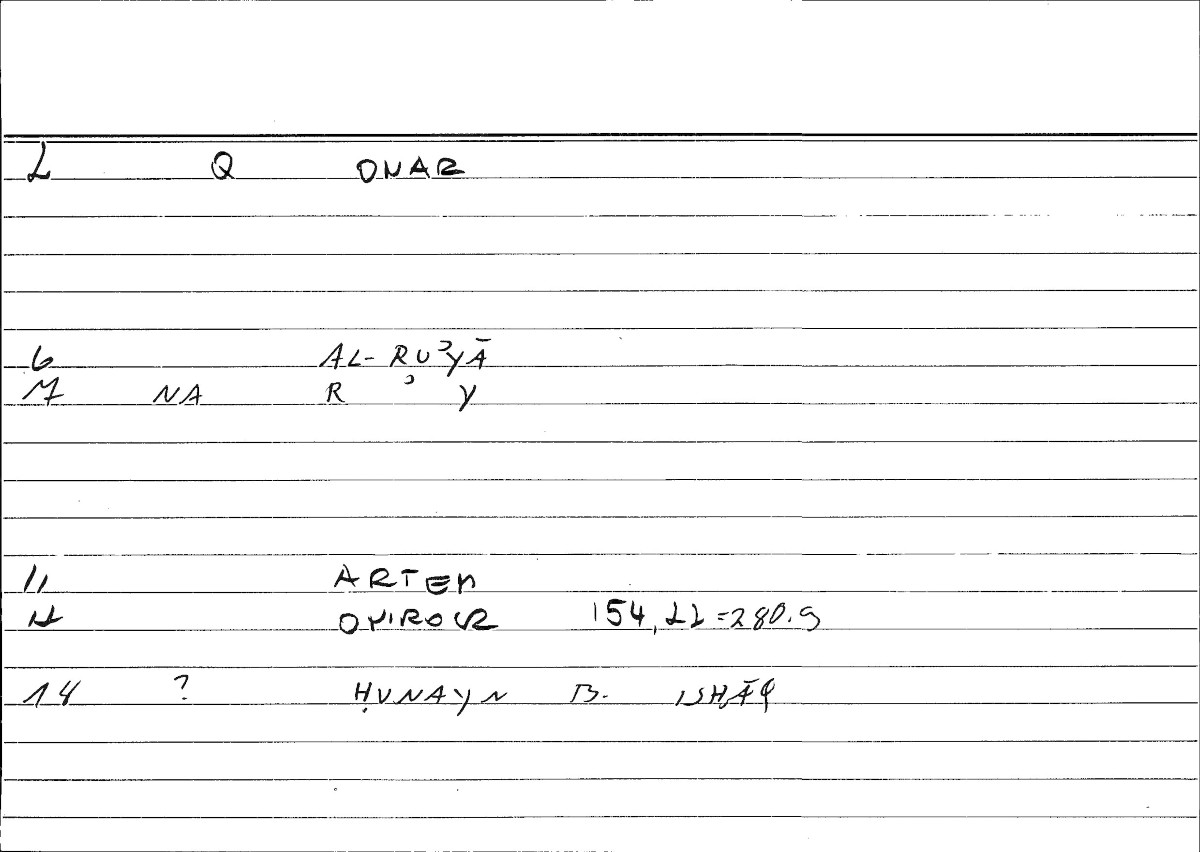 2 Q ONAR
6 AL-RUʾYĀ
7 NA R ʾ Y
11 ARTEM
12 ONIROCR 154,22=280.9
14 ? ḤUNAYN B. ISḤĀQ